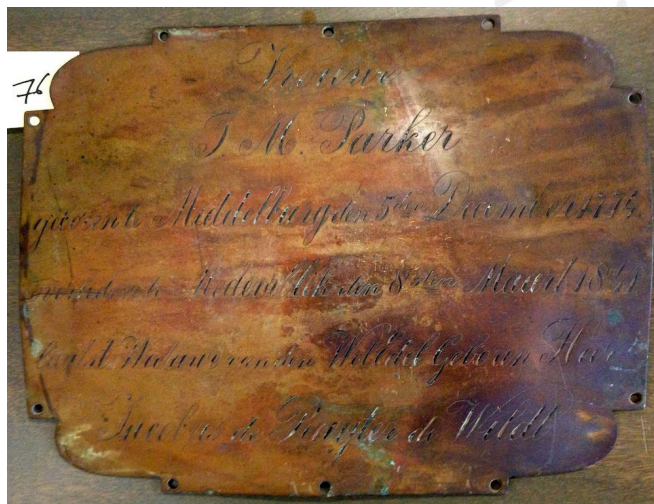 76
Vrouwe
J. M. Parker
geboren te Middelburg den 5den December
overleden te Medemblik den 8sten Maart 1841
Laatst Weduwe van den WelEdel Geboren Heer
Jacobus de Ruyter de Wildt